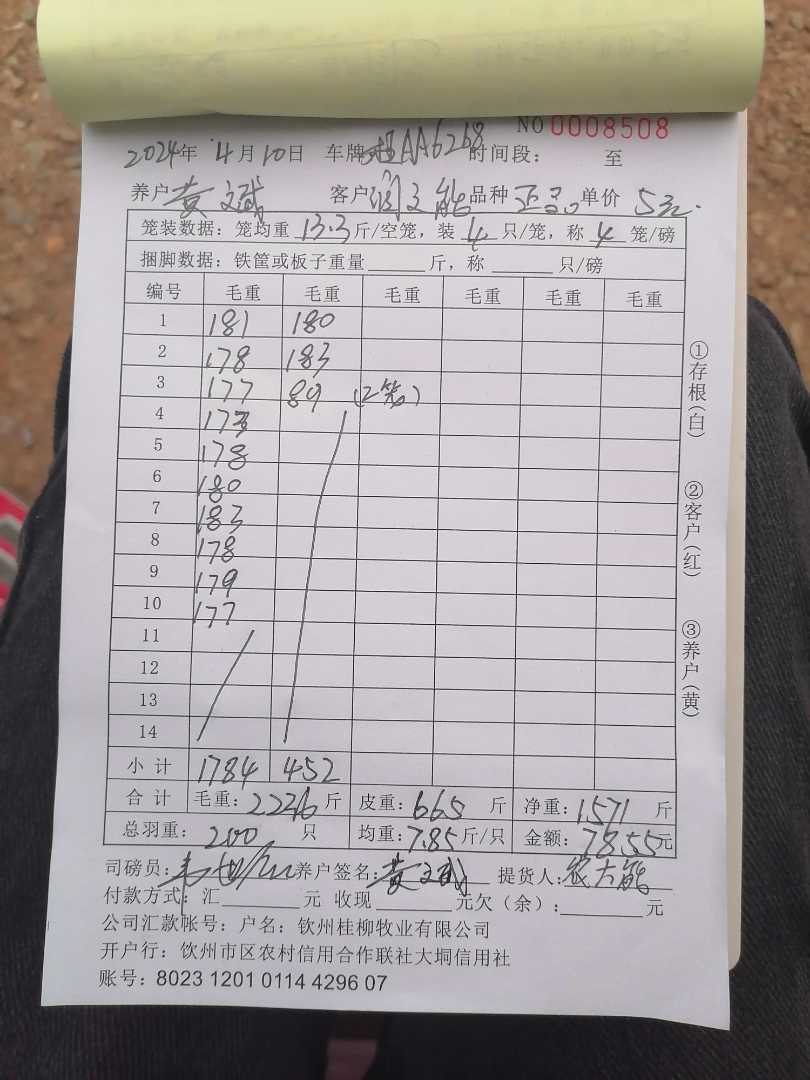 NO 0008508
2024年 4月10日 车牌 AA6268 时间段： 至
养户 黄文斌 客户 能 品种 正品 单价 5元.
笼装数据：笼均重 13.3 斤/空笼，装 4 只/笼，称 4 笼/磅
捆脚数据：铁筐或板子重量 斤，称 只/磅
编号 毛重 毛重 毛重 毛重 毛重 毛重
1 181 180
2 178 183
3 177 89 (2笼)
4 173
5 178
6 180
7 183
8 178
9 179
10 177
11
12
13
14
小计 1784 452
合计 毛重：2236 斤 皮重：665 斤 净重：1571 斤
总羽重：200 只 均重：7.85 斤/只 金额：7855 元
司磅员： 养户签名：黄文斌 提货人：农大能
付款方式：汇 元 收现 元欠（余）： 元
公司汇款帐号：户名：钦州桂柳牧业有限公司
开户行：钦州市区农村信用合作联社大垌信用社
账号：8023 1201 0114 4296 07
①存根(白)
②客户(红)
③养户(黄)